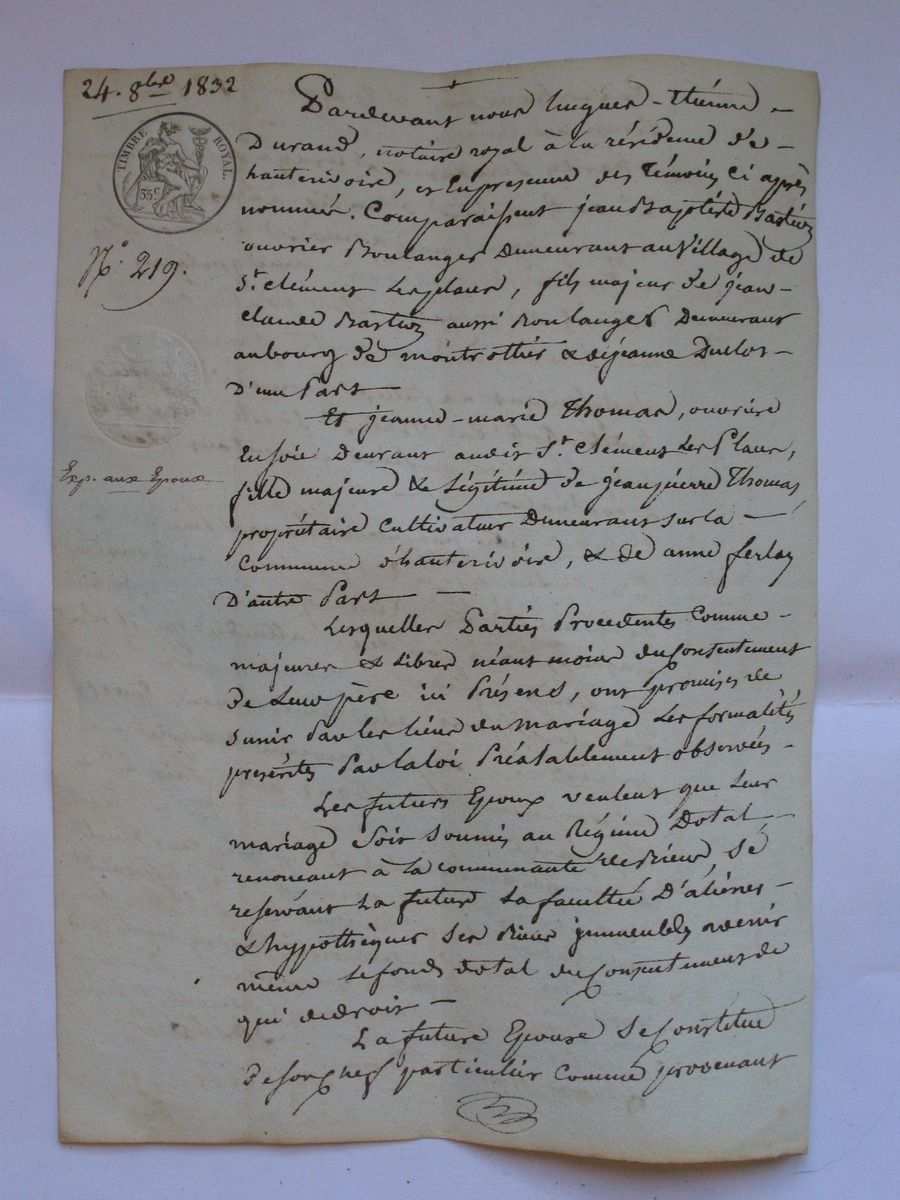 24. 8bre 1832
TIMBRE ROYAL.
35c
No. 219.
Exp. aux Epoux
Pardevant nous hugues-étienne
Durand, notaire royal à la résidence de
hauterivoire, et en presence des témoins ci après
nommés. Comparaissent jean Baptiste Bastion
ouvrier Boulanger Demeurant au Village de
St. Clément Les places, fils majeur de jean-
claude Bastion aussi Boulanger Demeurant
au bourg de montrottier & de jeanne Duclos
D'une Part
Et jeanne-marie Thomas, ouvrière
En soie Deurant audit St. Clément Les Places,
fille majeure & Légitime de jean pierre Thomas
propriétaire Cultivateur Demeurant sur la
Commune d'hauterivoire, & de anne ferlay
D'autre Part
Lesquelles Parties Procedentes Comme
majeures & Libres néant moins du Consentement
De Leur père ici Présens, ont promises de
sunir Par les liens du mariage Les formalités
prescrites Par la loi Préalablement observées
Les futurs Epoux veulent que Leur
mariage Soit Soumis au Régime Dotal
renonceant à la communauté de Biens, Sé
reservant La future La faculté D'aliéner
& hypothèquer Ses Biens immeubles avenir
même Le fonds dotal du Consentement de
qui de droit
La future Epouse Se Constitue
De son Chef particulier Comme provenant